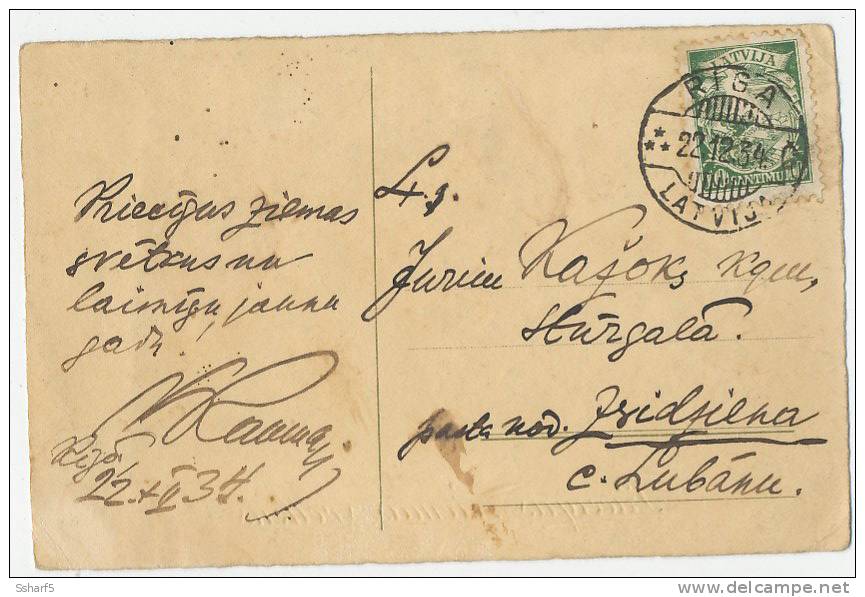 Priecīgus ziemas
svētkus un
laimīgu, jaunu
gadu!
Rīgā,
22.XII 34.
L. g.
Jurim Kažoks kgm,
Stūrgalā.
pasta nod. Zvidziena
c. Lubānu.
LATVIJA
SANTIMU
RIGA
22.12.34
LATVIJA
Ssharf5
www.delcampe.net